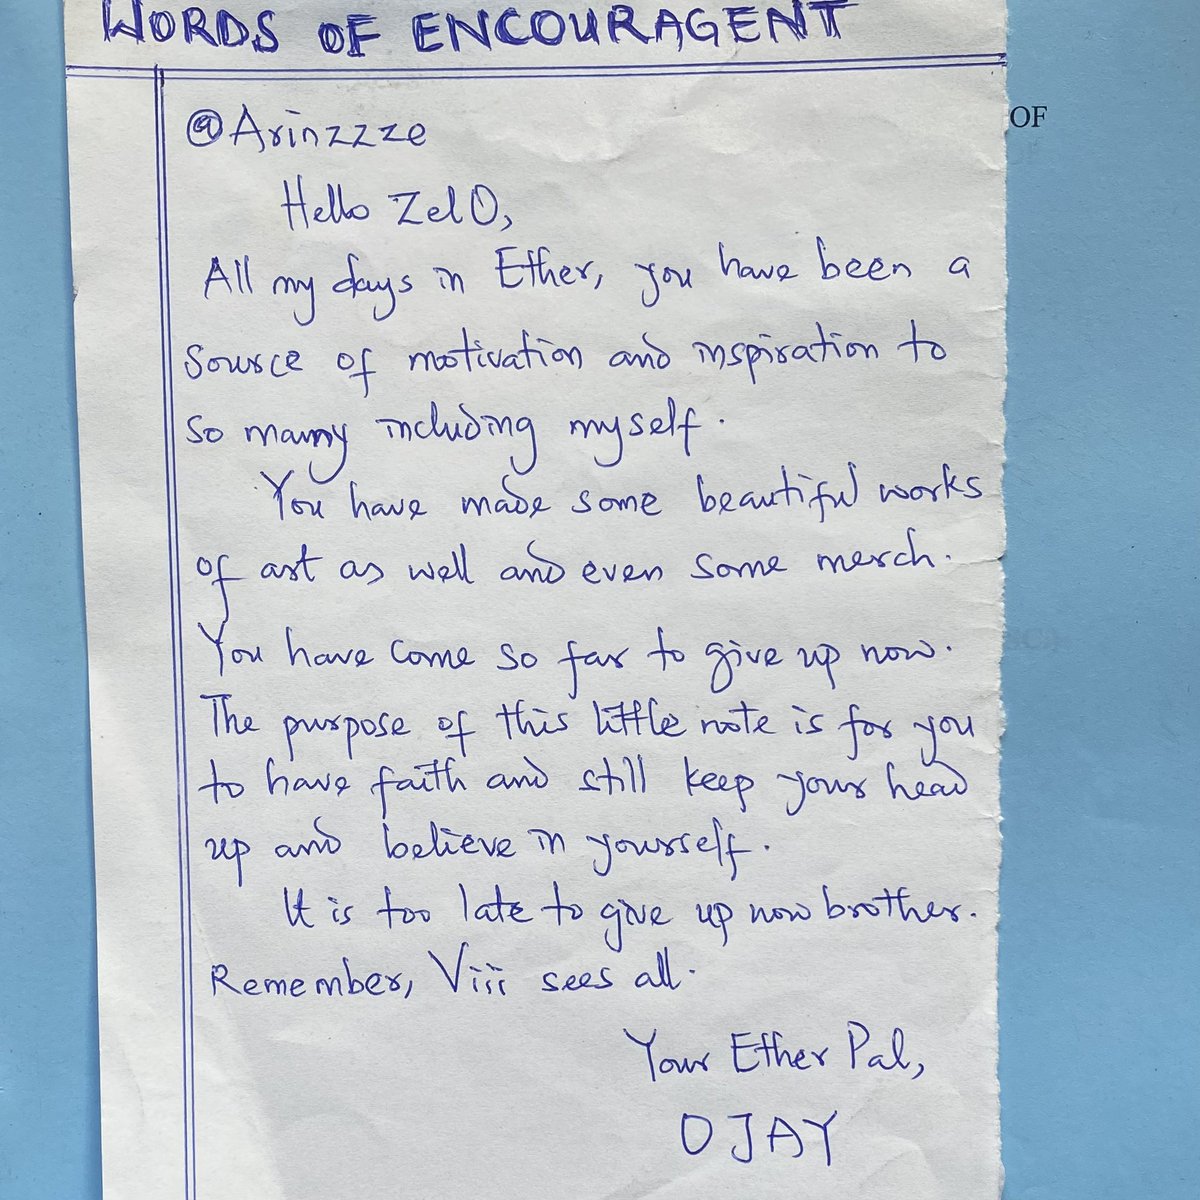 WORDS OF ENCOURAGENT
@Arinzzze
Hello ZelO,
All my days in Ether, you have been a
source of motivation and inspiration to
so many including myself.
You have made some beautiful works
of art as well and even some merch.
You have come so far to give up now.
The purpose of this little note is for you
to have faith and still keep your head
up and believe in yourself.
It is too late to give up now brother.
Remember, Viii sees all.
Your Ether Pal,
OJAY
OF